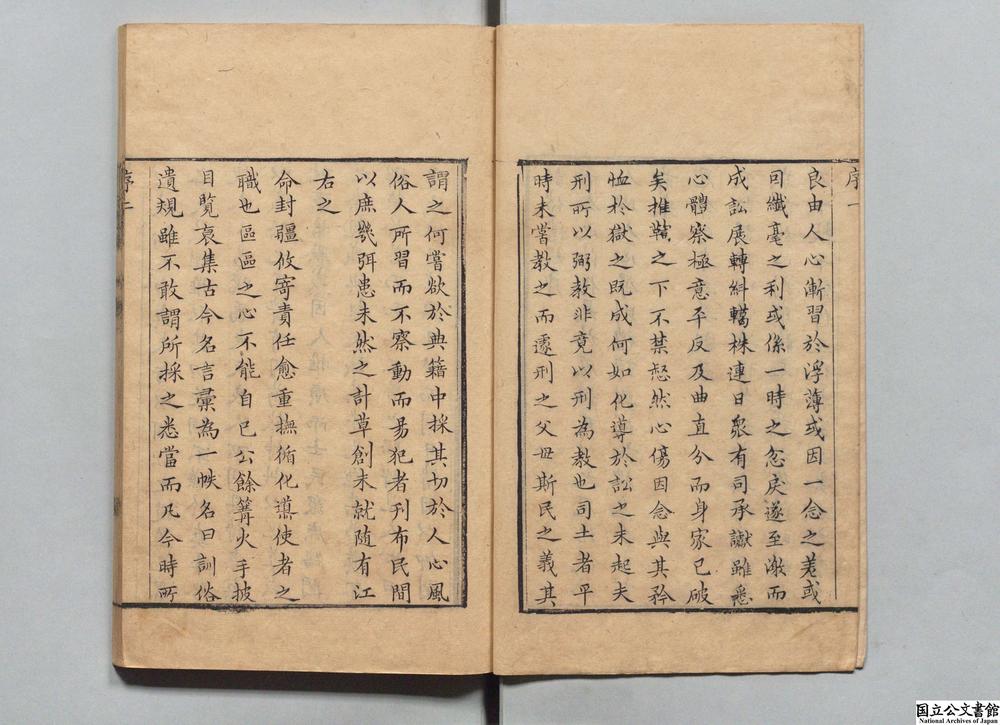 序一
良由人心漸習於浮薄或因一念之差或
回纖毫之利或係一時之忿戾遂至激而
成訟展轉糾轕株連日衆有司承讞雖悉
心體察極意平反及曲直分而身家已破
矣推鞫之下不禁惄然心傷因念與其矜
恤於獄之既成何如化導於訟之未起夫
刑所以弼教非竟以刑為教也司土者平
時未嘗教之而遽刑之父母斯民之義其
謂之何嘗欲於典籍中採其切於人心風
俗人所習而不察動而易犯者刊布民間
以庶幾弭患未然之計草創未就随有江
右之
命封疆攸寄責任愈重撫循化導使者之
職也區區之心不能自已公餘篝火手披
目覽裒集古今名言彙為一帙名曰訓俗
遺規雖不敢謂所採之悉當而凡今時所
序二
国立公文書館
National Archives of Japan